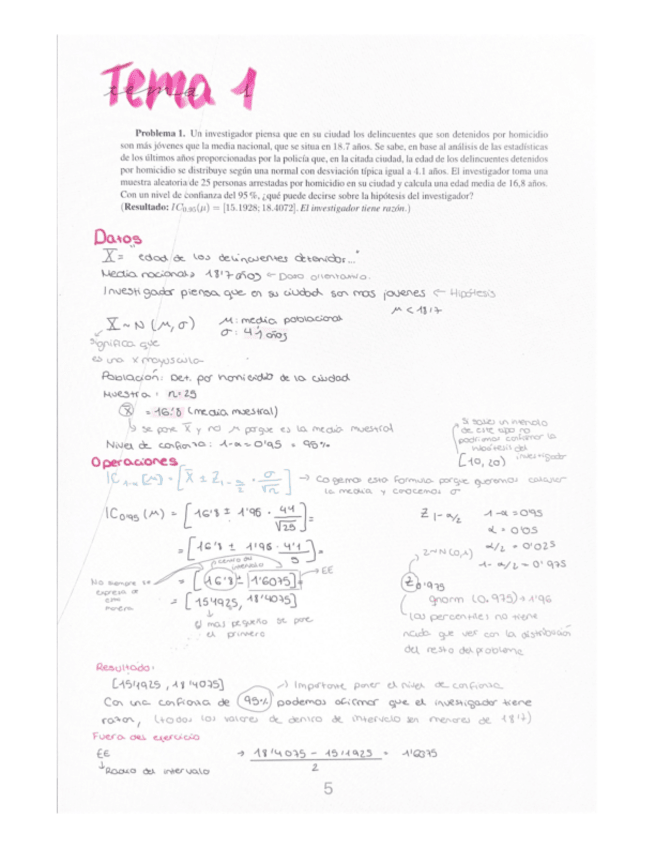 Tema 1
tema 1
Problema 1. Un investigador piensa que en su ciudad los delincuentes que son detenidos por homicidio
son más jóvenes que la media nacional, que se situa en 18.7 años. Se sabe, en base al análisis de las estadísticas
de los últimos años proporcionadas por la policía que, en la citada ciudad, la edad de los delincuentes detenidos
por homicidio se distribuye según una normal con desviación típica igual a 4.1 años. El investigador toma una
muestra aleatoria de 25 personas arrestadas por homicidio en su ciudad y calcula una edad media de 16,8 años.
Con un nivel de confianza del 95 %, ¿qué puede decirse sobre la hipótesis del investigador?
(Resultado: IC0.95(μ) = [15.1928; 18.4072]. El investigador tiene razón.)
Datos
X = edad de los delincuentes detenidos..."
Media nacional → 18'7 años ← Dato orientativo.
Investigador piensa que en su ciudad son mas jovenes ← Hipótesis
μ < 18'7
X ~ N (μ, σ) μ: media poblacional
σ: 4'1 años
significa que
es una x mayuscula
Población: Det. por homicidio de la ciudad
Muestra: n=25
X̄ = 16'8 (media muestral)
↳ se pone X̄ y no μ porque es la media muestral
Nivel de confianza: 1-α = 0'95 = 95%
Si un
de este tipo no
podriamos confirmar la
hipótesis del
investigador
[10, 20)
Operaciones
IC1-α [μ] = [X̄ ± Z1-α/2 · σ/√n] → Cogemos esta formula porque queremos calcular
la media y conocemos σ
IC0'95 (μ) = [16'8 ± 1'96 · 4'1/√25] =
= [16'8 ± 1'96 · 4'1/5] =
centro del
intervalo
= [16'8 ± 1'6075] = → EE
= [15'1925, 18'4075]
No siempre se
expresa de
esta
manera
El mas pequeño se pone
el primero
Z1-α/2 1-α = 0'95
α = 0'05
α/2 = 0'025
1-α/2 = 0'975
Z~N(0,1)
Z0'975
qnorm (0.975) = 1'96
Los percentiles no tiene
nada que ver con la distribución
del resto del problema
Resultado:
[15'1925, 18'4075] → Importante poner el nivel de confianza
Con una confianza de 95% podemos afirmar que el investigador tiene
razon, (todos los valores de dentro de intervalo son menores de 18'7)
Fuera del ejercicio
EE → 18'4075 - 15'1925 / 2 = 1'6075
↓ Radio del intervalo
5